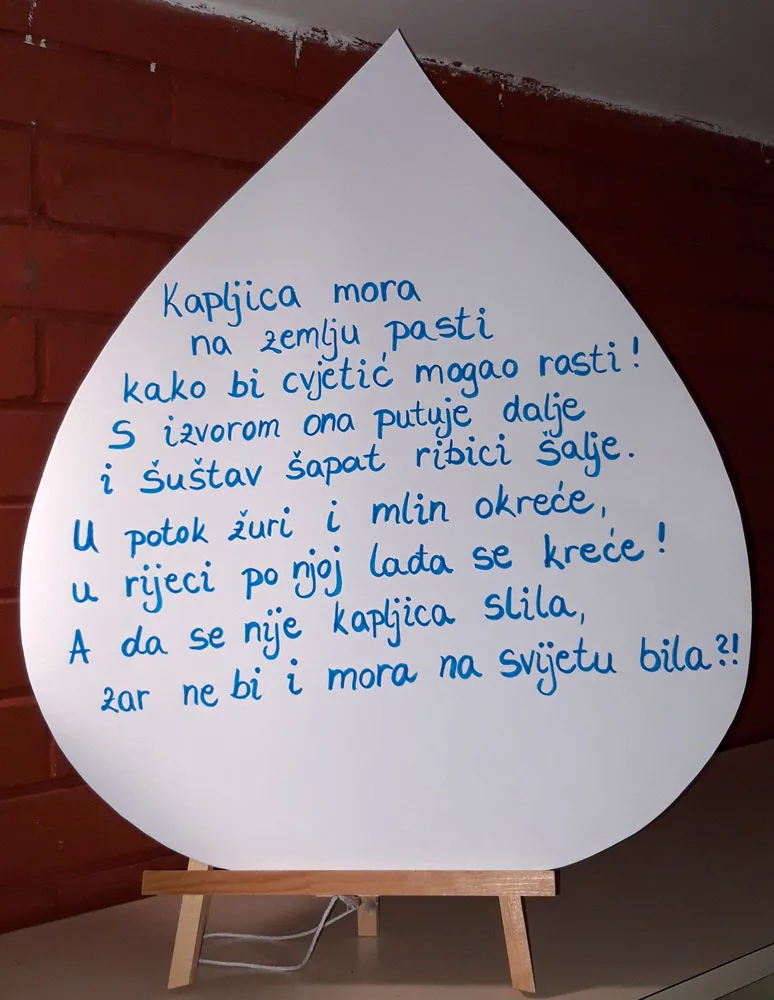 Kapljica mora
na zemlju pasti
kako bi cvjetić mogao rasti!
S izvorom ona putuje dalje
i šuštav šapat ribici šalje.
U potok žuri i mlin okreće,
u rijeci po njoj lađa se kreće!
A da se nije kapljica slila,
zar ne bi i mora na svijetu bila?!